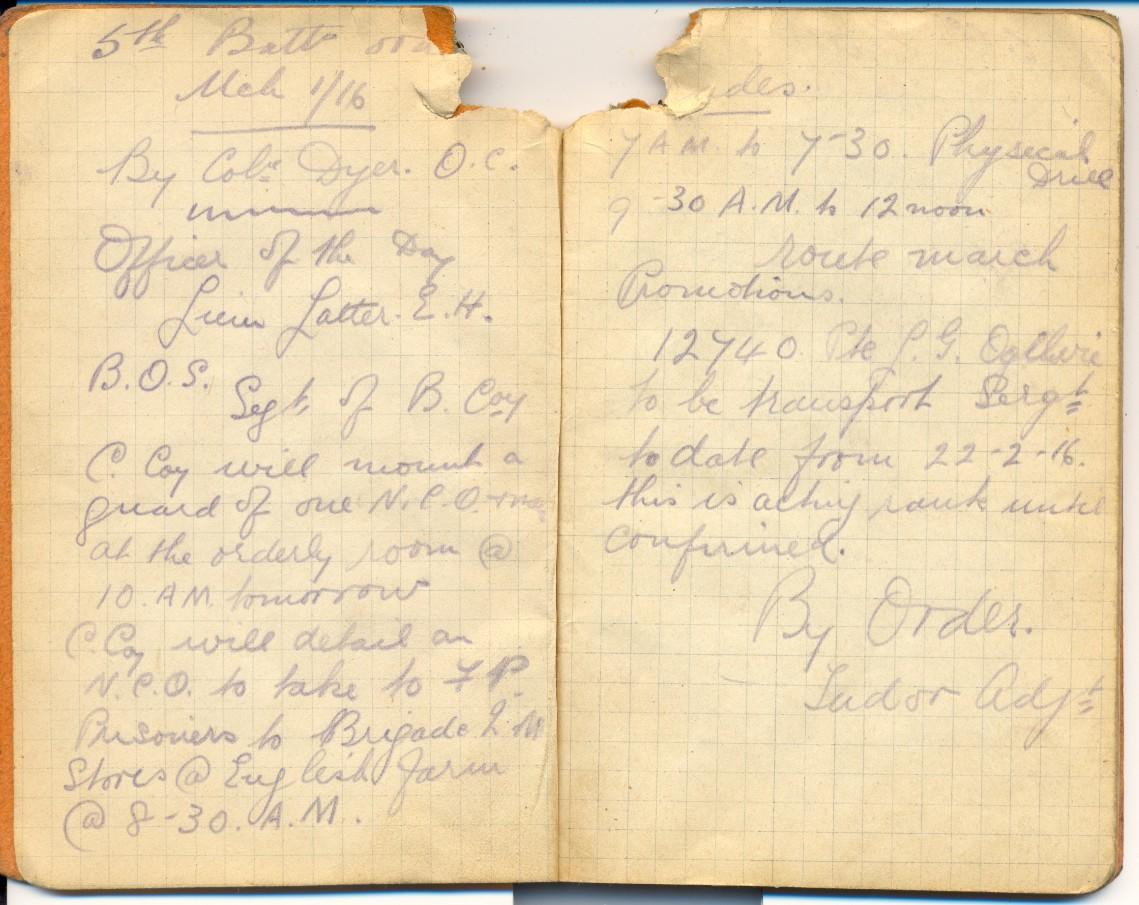 5th Battn
Mch 1/16
By Colnl Dyer. O.C.
Officer of the Day
Lieu Latter. E.H.
B.O.S.
Segt. of B. Coy
C. Coy will mount a
guard of one N.C.O. +
at the orderly room @
10. A.M. tomorrow
C. Coy will detail an
N.C.O. to take to F.P.
Prisoners to Brigade Q.M
Stores @ English Farm
@ 8-30. A.M.
des.
7 A M. to 7-30. Physical
Drill
9-30 A.M. to 12 noon
route march
Promotions.
12740 Pte J. G. Ogilvie
to be transport Sergt
to date from 22-2-16.
this is acting rank until
confirmed.
By Order.
Tudor Adjt